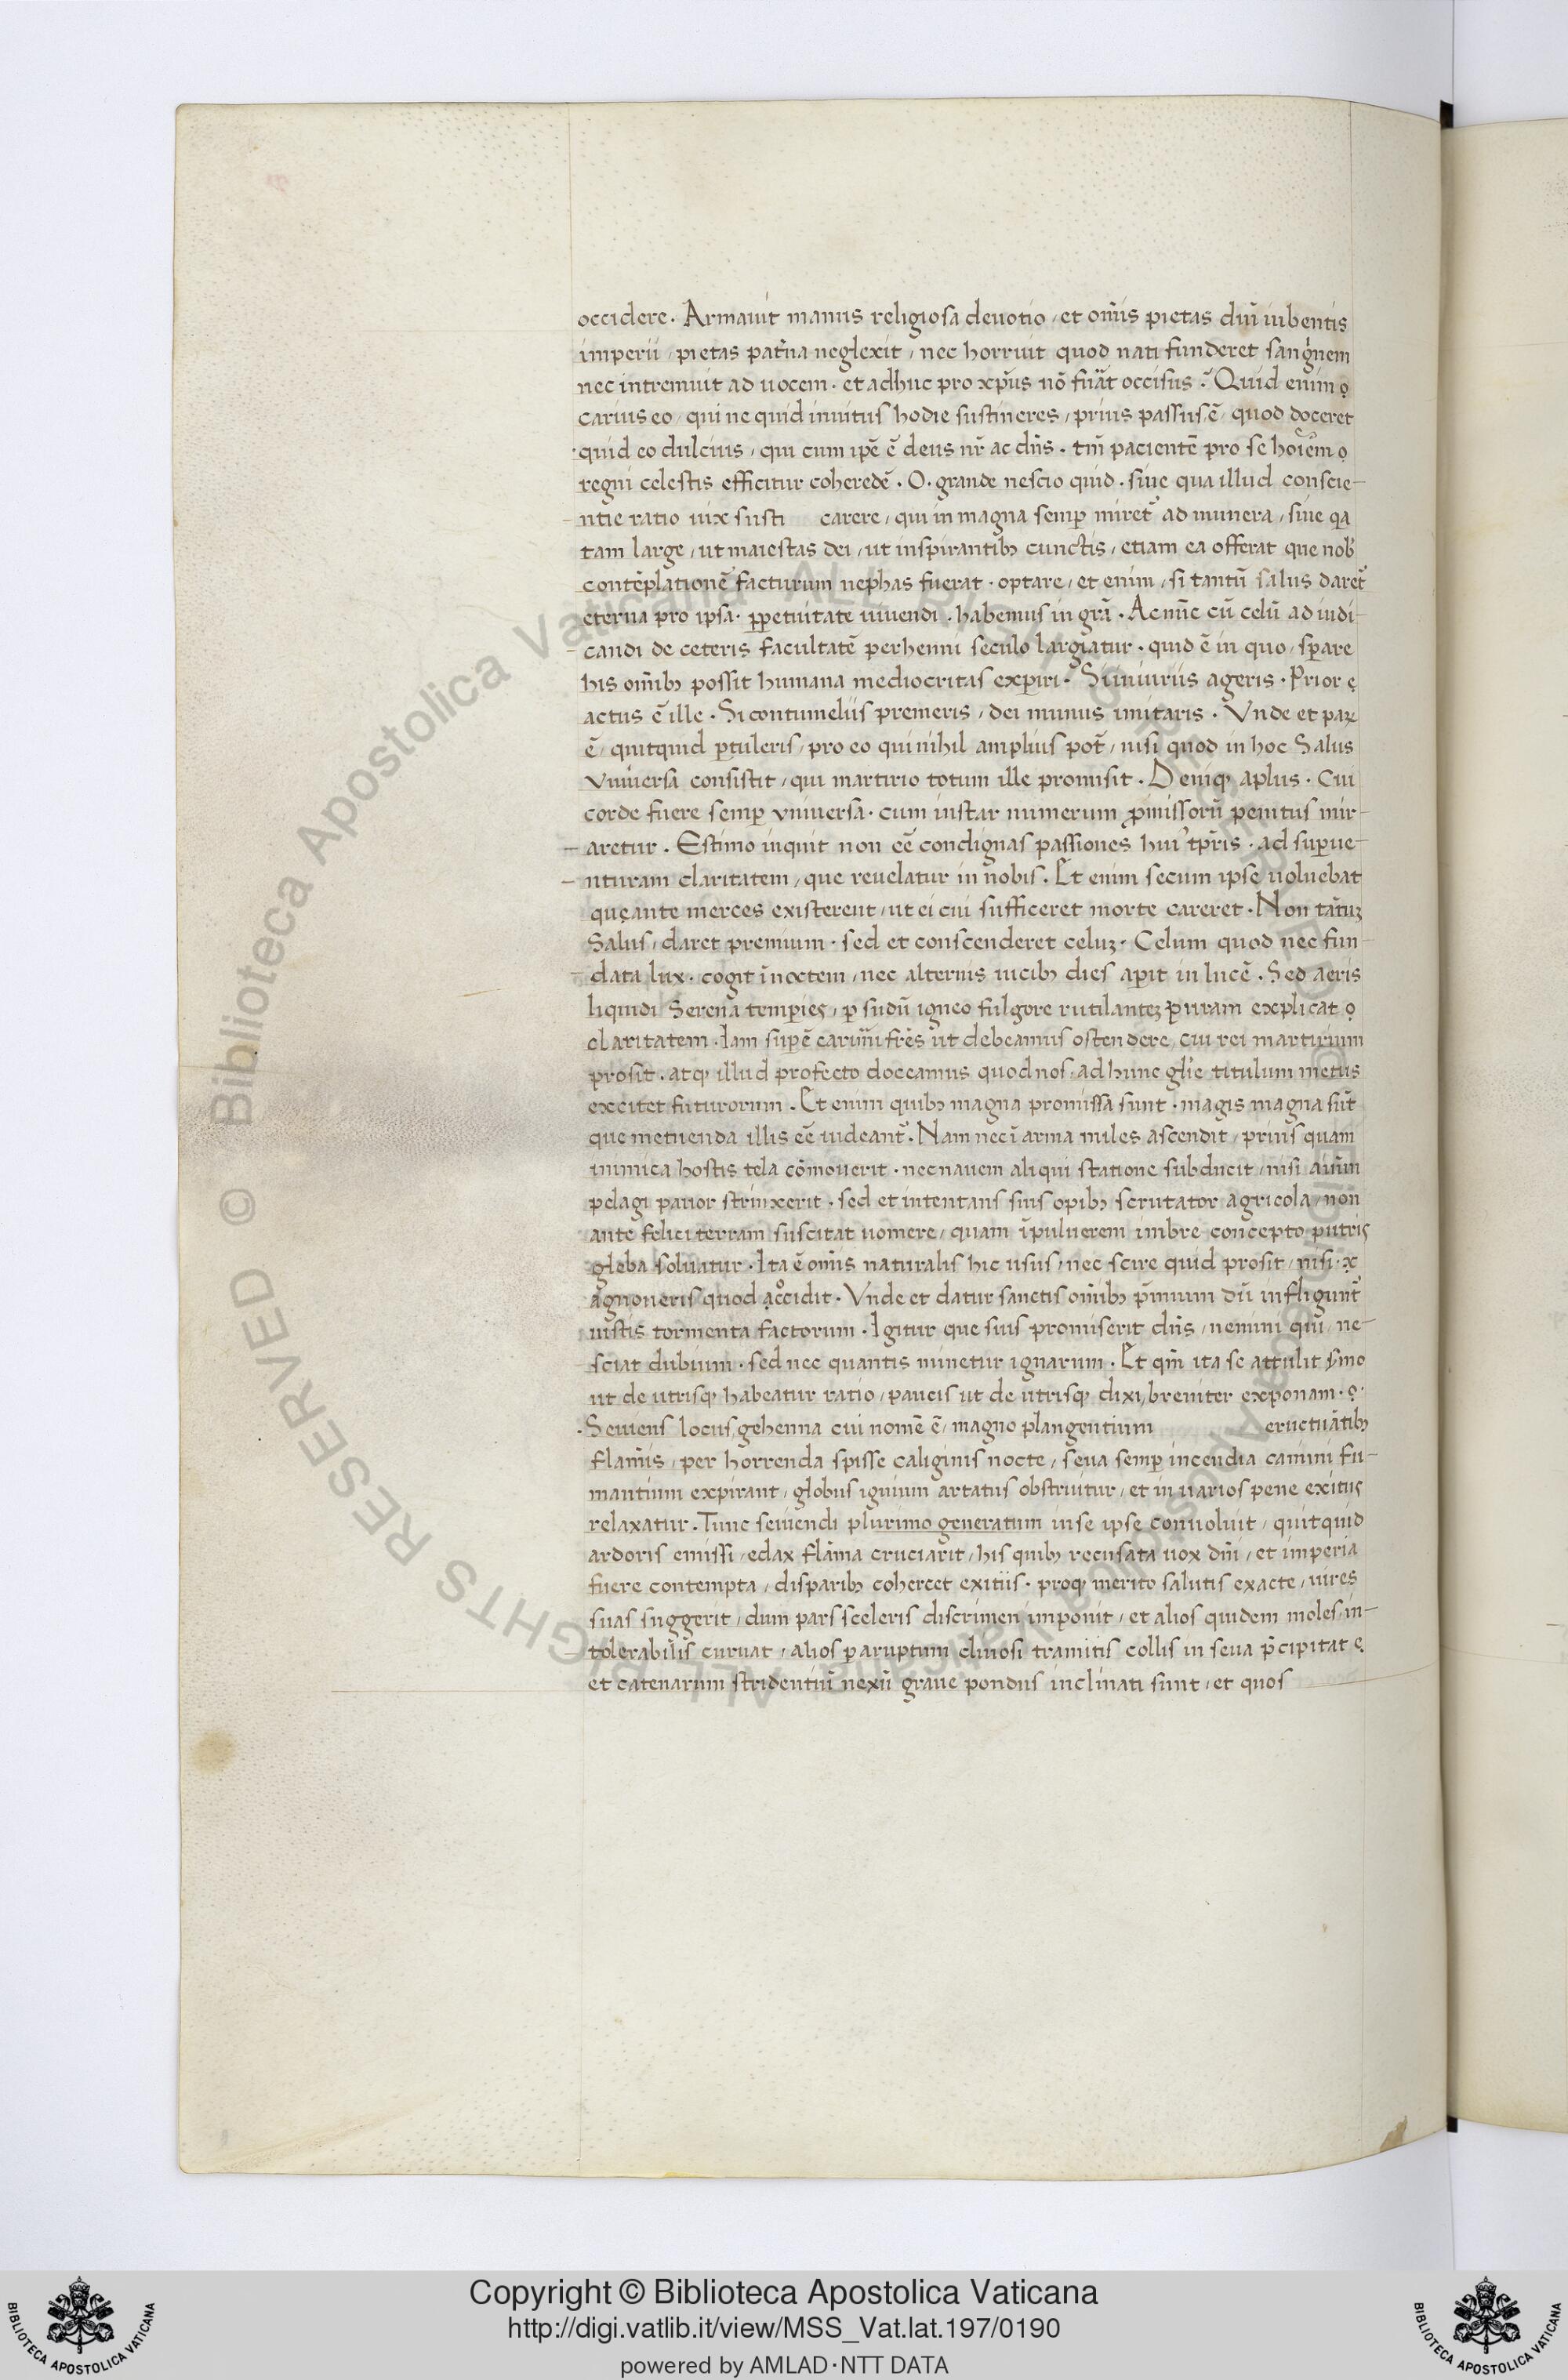 occidere . Armauit manus religiosa deuotio , et om̅is pietas dn̅i iubentis
imperii , pietas pat̅na neglexit , nec horruit quod nati funderet sangⁱnem
nec intremuit ad uocem . et adhuc pro xp̅us no̅ fua̅t occisus . Quid enim
carius eo , qui ne quid inuitus hodie sustineres , prius passus e̅ , quod doceret
quid eo dulcius , qui cum ip̅e e̅ deus nr̅ ac dn̅s . tm̅ paciente̅ pro se
regni celestis efficitur coherede̅ . O . grande nescio quid . siue qua illud conscie-
ntie ratio uix susti carere , qui in magna semꝑ miret᷑ ad munera , siue qa
tam large , ut maiestas dei , ut inspirantibꝫ cunctis , etiam ea offerat que nob᷑
conte̅platione̅ facturum nephas fuerat . optare , et enim , si tantu̅ salus daret᷑
eterna pro ipsa . ꝑpetuitate uiuendi . habemus in gr̅a . Ac nu̅c cu̅ celu̅ ad iudi-
candi de ceteris facultate̅ perhenni seculo largiatur . quid e̅ in quo , sꝑare
his om̅ibꝫ possit humana mediocritas exꝑiri . Si iniuriis ageris . Prior
actus e̅ ille . Si contumeliis premeris , dei munus imitaris . Vnde et paꝝ
e̅ , quitquid ꝑtuleris , pro eo qui nihil amplius pot̅ , nisi quod in hoc Salus
Vniuersa consistit , qui martirio totum ille promisit . Deniqꝫ aplus . Cui
corde fuere semꝑ vniuersa . cum instar numerum ꝓmissoru̅ penitus mir-
aretur . Estimo inquit non ee̅ condignas passiones hui᷒ tp̅ris . ad suꝑue-
nturam claritatem , que reuelatur in nobis . Et enim secum ipse uoluebat
quęante merces existerent , ut ei cui sufficeret morte careret . Non ta̅tuꝫ
Salus , daret premium . sed et conscenderet celuꝫ . Celum quod nec fun-
data lux . cogit i̅ noctem , nec alternis uicibꝫ dies aꝑit in luce̅ . Sed aeris
liquidi Serena temꝑies , ꝑ sudu̅ igneo fulgore rutilanteꝫ Puram explicat
claritatem . Iam suꝑe̅ carim̅i fr̅es ut debeamus ostendere , cui rei martirium
prosit . atqꝫ illud profecto doceamus quod nos , ad hunc gl̅ie titulum metus
excitet futurorum . Et enim quibꝫ magna promissa sunt . magis magna su̅t
que metuenda illis ee̅ uideant᷑ . Nam nec i̅ arma miles ascendit , prius quam
inimica hostis tela co̅mouerit . nec nauem aliqui statione subducit , nisi
pelagi pauor strinxerit . sed et intentans suis opibꝫ scrutator agricola , non
ante felici terram suscitat uomere , quam i̅ puluerem imbre concepto putris
gleba soluatur . Ita e̅ om̅is naturalis hic usus , nec scire quid prosit , nisi .
agnoueris quod accidit . Vnde et datur sanctis om̅ibꝫ p̅mium du̅ infligunt᷑
iustis tormenta factorum . Igitur que suis promiserit dn̅s , nemini , ne-
sciat dubium . sed nec quantis minetur ignarum . Et qm̅ ita se attulit ẜmo
ut de utrisqꝫ habeatur ratio , paucis ut de utrisqꝫ dixi , breuiter exponam .
Seuiens locus gehenna cui nome̅ e̅ , magno plangentium eructua̅tibꝫ
flam̅is , per horrenda spisse caliginis nocte , seua semꝑ incendia camini fu-
mantium expirant , globus ignium artatus obstruitur , et in uarios pene exitus
relaxatur . Tunc seuiendi plurimo generatum in se ipse conuoluit , quitquid
ardoris emissi , edax fla̅ma cruciarit , his quibꝫ recusata uox dn̅i , et imperia
fuere contempta , disparibꝫ cohercet exitiis . proqꝫ merito salutis exacte , uires
suas suggerit , dum pars sceleris discrimen imponit , et alios quidem moles in-
tolerabilis curuat , alios ꝑ aruptum cliuosi tramitis collis in seua p̅cipitat
et catenarum stridentiu̅ nexu̅ graue pondus inclinati sunt , et quos
Copyright © Biblioteca Apostolica Vaticana
http://digi.vatlib.it/view/MSS_Vat.lat.197/0190
powered by AMLAD·NTT DATA
BIBLIOTECA APOSTOLICA VATICANA
BIBLIOTECA APOSTOLICA VATICANA
© Biblioteca Apostolica Vaticana ALL RIGHTS RESERVED